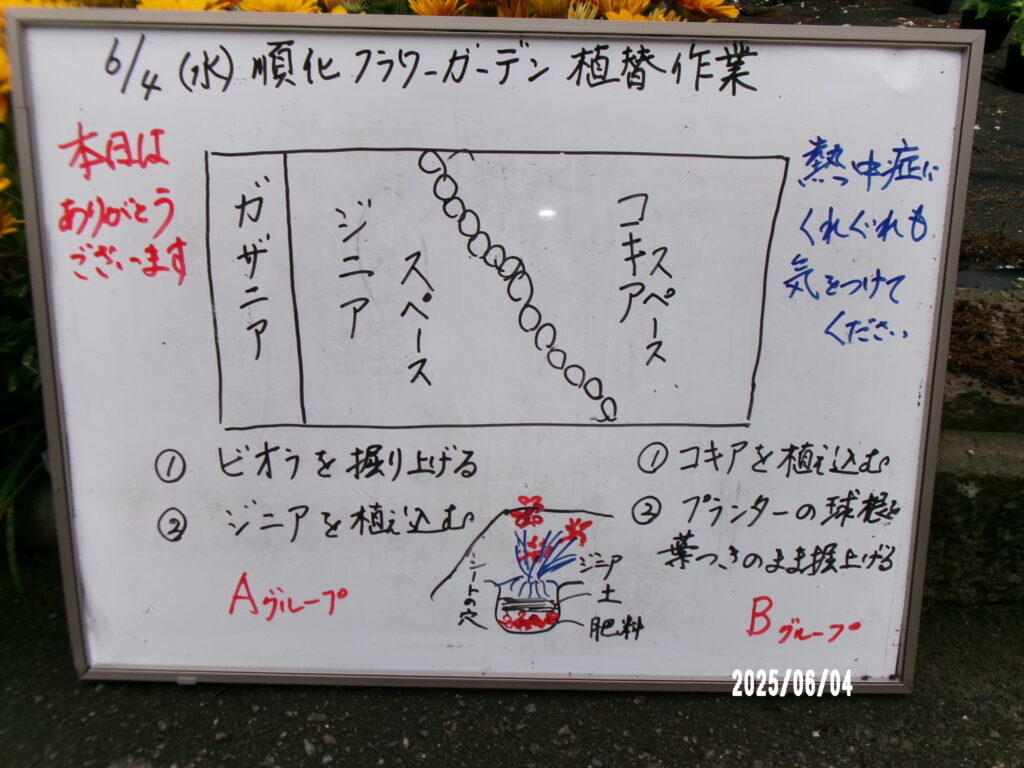 6/4(水)順化フラワーガーデン 植替作業
本日は
ありがとう
ございます
ガザニア
ジニア
スペース
コキア
スペース
熱中症に
くれぐれも
気をつけて
ください
① ビオラを掘り上げる
② ジニアを植え込む
Aグループ
シートの穴
ジニア
土
肥料
① コキアを植え込む
② プランターの球根を
葉つきのまま掘上げる
Bグループ
2025/06/04